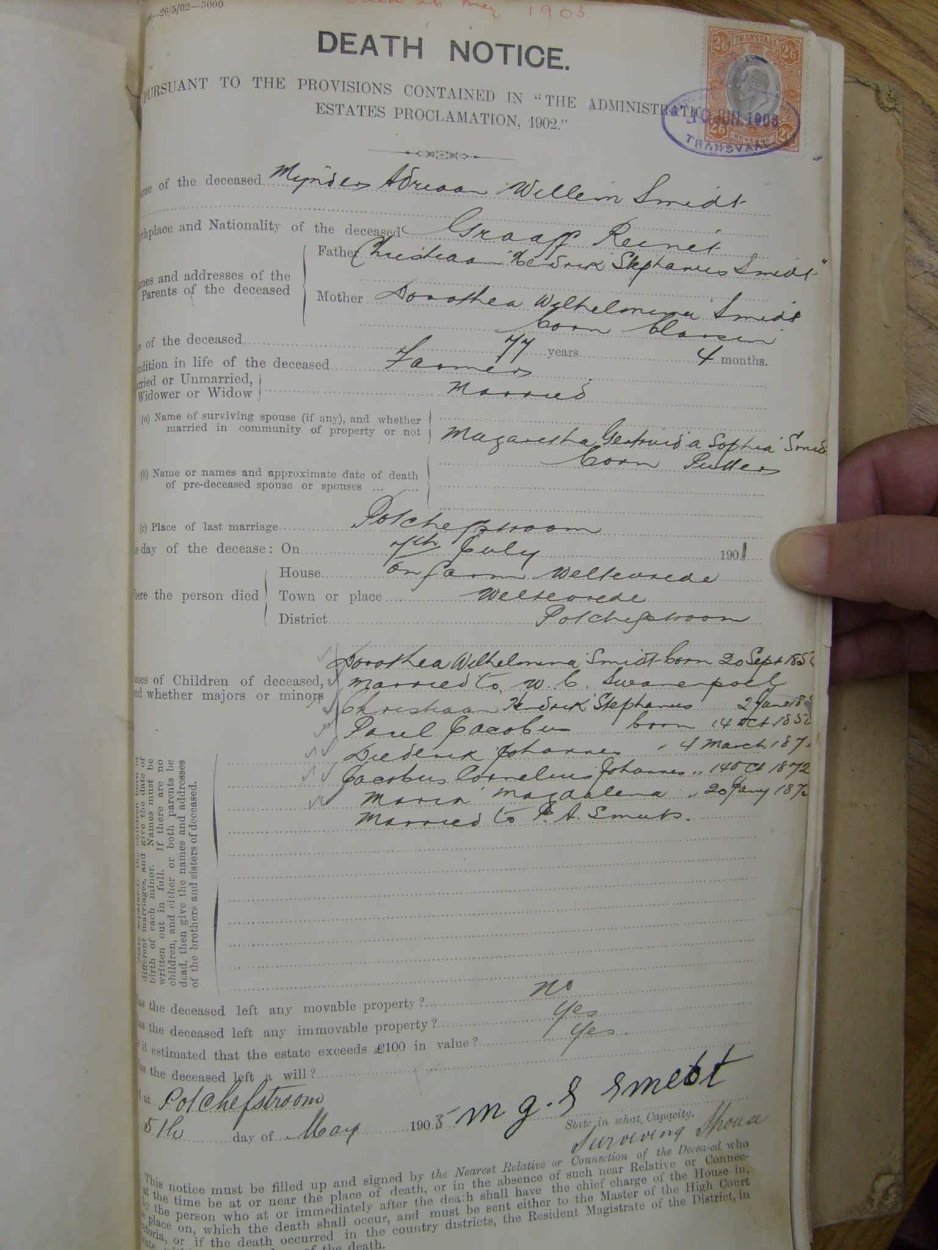 —26/5/02—5000
26 May 1903.
DEATH NOTICE.
PURSUANT TO THE PROVISIONS CONTAINED IN "THE ADMINISTRATION
ESTATES PROCLAMATION, 1902."
TRANSVAAL
2/6 2/6
JUN 1903
TRANSVAAL
me of the deceased Mynders Adriaan Willem Smidt
thplace and Nationality of the deceased Graaff Reinet
Father Christiaan Hendrik Stephanus Smidt
mes and addresses of the
Parents of the deceased
Mother Dorothea Wilhelmina Smidt
born
e of the deceased 77 years 4 months.
ndition in life of the deceased Farmer
rried or Unmarried,
Widower or Widow Married
(a) Name of surviving spouse (if any), and whether
married in community of property or not
Magaretha Gertruida Sophia Smidt
born
(b) Name or names and approximate date of death
of pre-deceased spouse or spouses ... ...
(c) Place of last marriage Potchefstroom
e day of the decease: On 7th July 1901
House on farm Weltevrede
ere the person died Town or place Weltevrede
District Potchefstroom
Dorothea Wilhelmina Smidt born 20 Sept 185
mes of Children of deceased, married to W. C. Swanepoel
nd whether majors or minors Christiaan Hendrik Stephanus 2 June 18
Paul Jacobus born 14 Oct 185
Diederik Johannes " 4 March 187
Jacobus Cornelius Johannes " 14 Oct 1872
Maria Magdalena " 20 Jany 187
Married to P. A. Smuts.
State separately the children born of
different marriages, and give the date of
birth of each minor. Names must be
written out in full. If there are no
children, and either or both parents be
dead, then give the names and addresses
of the brothers and sisters of deceased.
as the deceased left any movable property?... no
as the deceased left any immovable property? yes
it estimated that the estate exceeds £100 in value? yes
as the deceased left a will?
at Potchefstroom
5th day of May 1903 M G. S Smidt
State in what Capacity.
Surviving Spouse
This notice must be filled up and signed by the Nearest Relative or Connection of the Deceased who
at the time be at or near the place of death, or in the absence of such near Relative or Connec-
by the person who at or immediately after the death shall have the chief charge of the House in,
place on, which the death shall occur, and must be sent either to the Master of the High Court
toria, or if the death occurred in the country districts, the Resident Magistrate of the District, in
of the death.